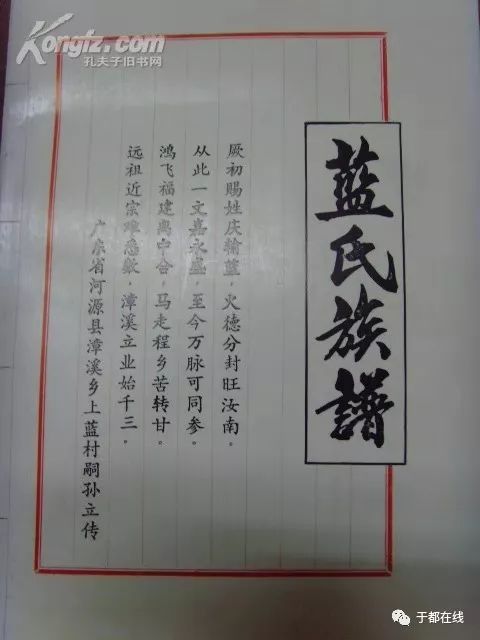 Kongfz.com
孔夫子旧书网
藍氏族譜
厥初赐姓庆输蓝，火德分封旺汝南。
从此一文嘉永盛，至今万脉可同参。
鸿飞福建离中合，马走程乡苦转甘。
远祖近宗难悉数，漳溪立业始千三。
广东省河源县漳溪乡上蓝村嗣孙立传
于都在线